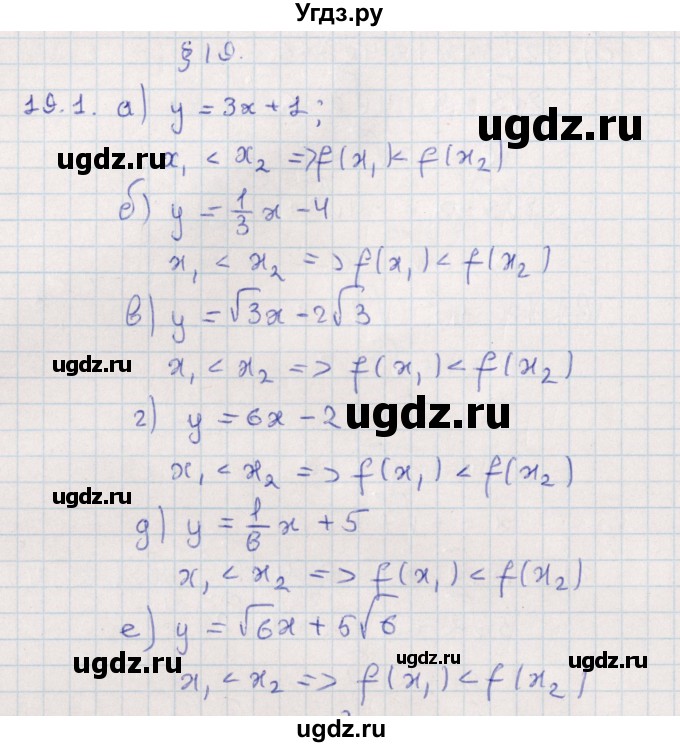 Угдз.ру
§ 19.
19.1. а) y = 3x + 1;
ugdz.ru
x₁ < x₂ => f(x₁) < f(x₂)
ugdz.ru
б) y = 1/3 x - 4
x₁ < x₂ => f(x₁) < f(x₂)
в) y = √3x - 2√3
ugdz.ru
x₁ < x₂ => f(x₁) < f(x₂)
г) y = 6x - 2
ugdz.ru
x₁ < x₂ => f(x₁) < f(x₂)
ugdz.ru
д) y = 1/6 x + 5
x₁ < x₂ => f(x₁) < f(x₂)
ugdz.ru
е) y = √6x + 5√6
ugdz.ru
ugdz.ru
ugdz.ru
x₁ < x₂ => f(x₁) < f(x₂)
ugdz.ru